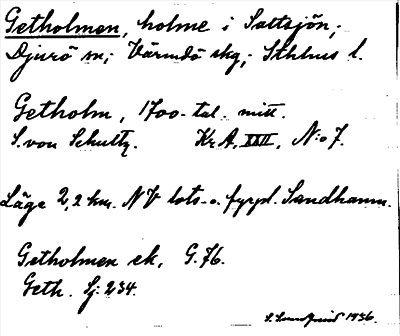 Getholmen, holme i Saltsjön;
Djurö sn; Värmdö skg; Sthlms l.
Getholm, 1700-tal. mitt.
S. von Schultz. KrA, XXII, N:o 7.
Läge 2,2 km. NV lots- o. fyrpl. Sandhamn.
Getholmen ek, G.76.
Geth. Sj: 234.
S. Lundquist 1936.